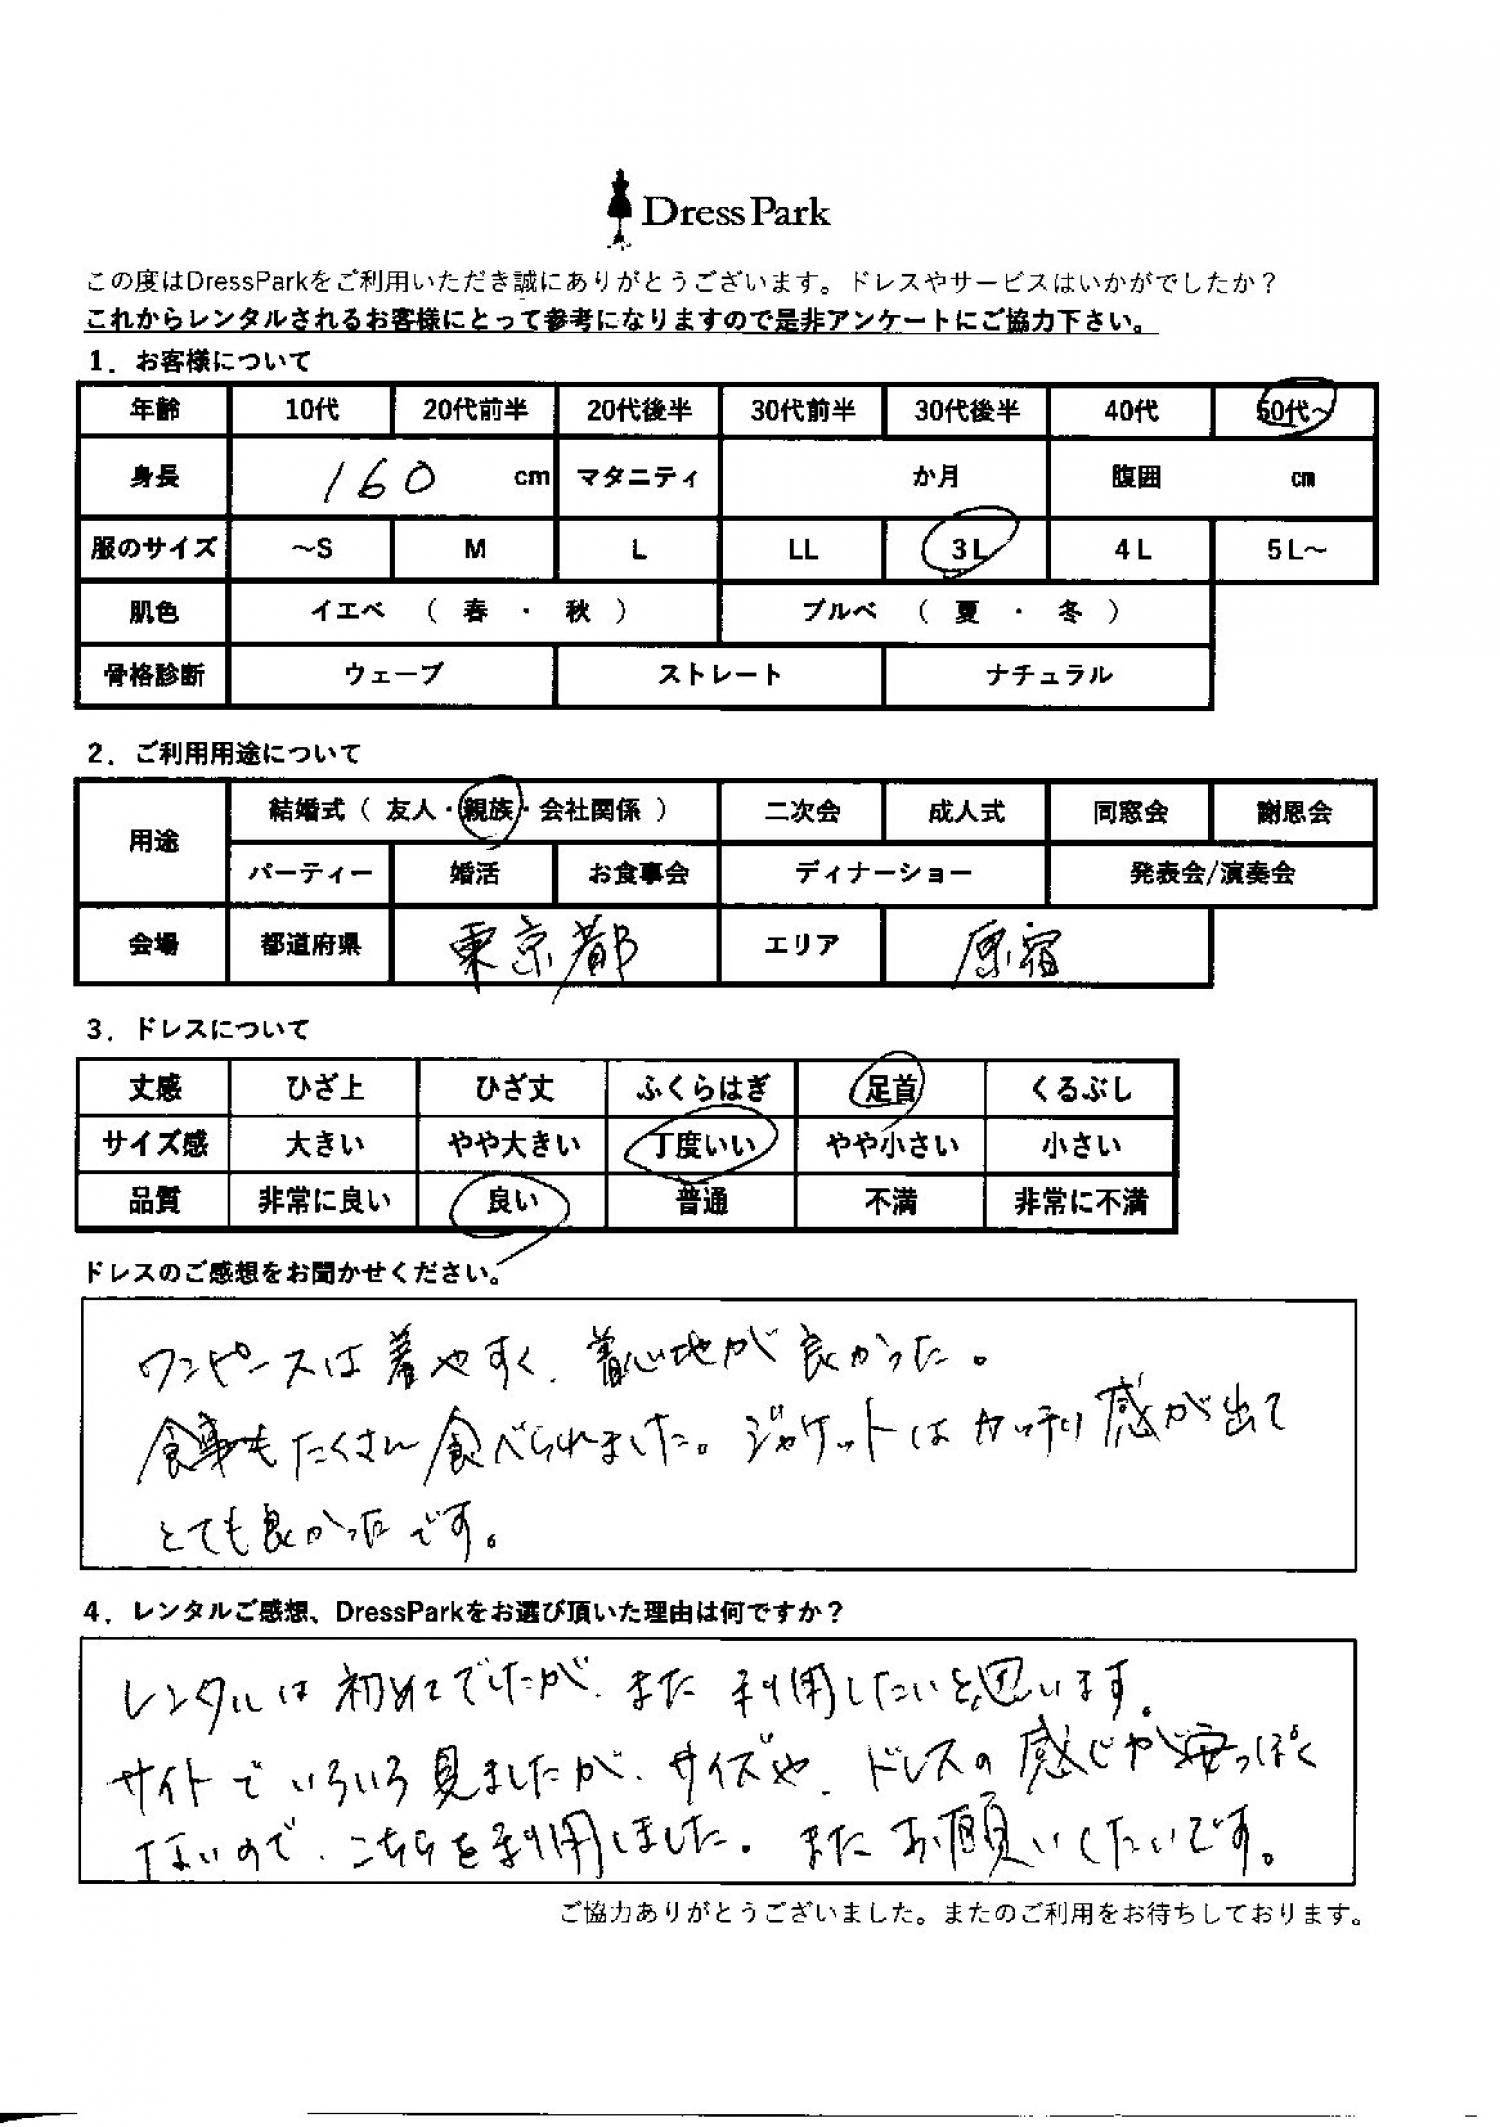 Dress Park
この度はDressParkをご利用いただき誠にありがとうございます。ドレスやサービスはいかがでしたか？
これからレンタルされるお客様にとって参考になりますので是非アンケートにご協力下さい。
1．お客様について
年齢 10代 20代前半 20代後半 30代前半 30代後半 40代 50代～
身長 160 cm マタニティ か月 腹囲 cm
服のサイズ ～S M L LL 3L 4L 5L～
肌色 イエベ （ 春 ・ 秋 ） ブルベ （ 夏 ・ 冬 ）
骨格診断 ウェーブ ストレート ナチュラル
2．ご利用用途について
用途 結婚式（ 友人・親族・会社関係 ） 二次会 成人式 同窓会 謝恩会
パーティー 婚活 お食事会 ディナーショー 発表会/演奏会
会場 都道府県 東京都 エリア 原宿
3．ドレスについて
丈感 ひざ上 ひざ丈 ふくらはぎ 足首 くるぶし
サイズ感 大きい やや大きい 丁度いい やや小さい 小さい
品質 非常に良い 良い 普通 不満 非常に不満
ドレスのご感想をお聞かせください。
ワンピースは着やすく、着心地が良かった。
食事もたくさん食べられました。ジャケットはカッチリ感が出て
とても良かったです。
4．レンタルご感想、DressParkをお選び頂いた理由は何ですか？
レンタルは初めてでしたが、また利用したいと思います。
サイトでいろいろ見ましたが、サイズや、ドレスの感じが安っぽく
ないので、こちらを利用しました。またお願いしたいです。
ご協力ありがとうございました。またのご利用をお待ちしております。